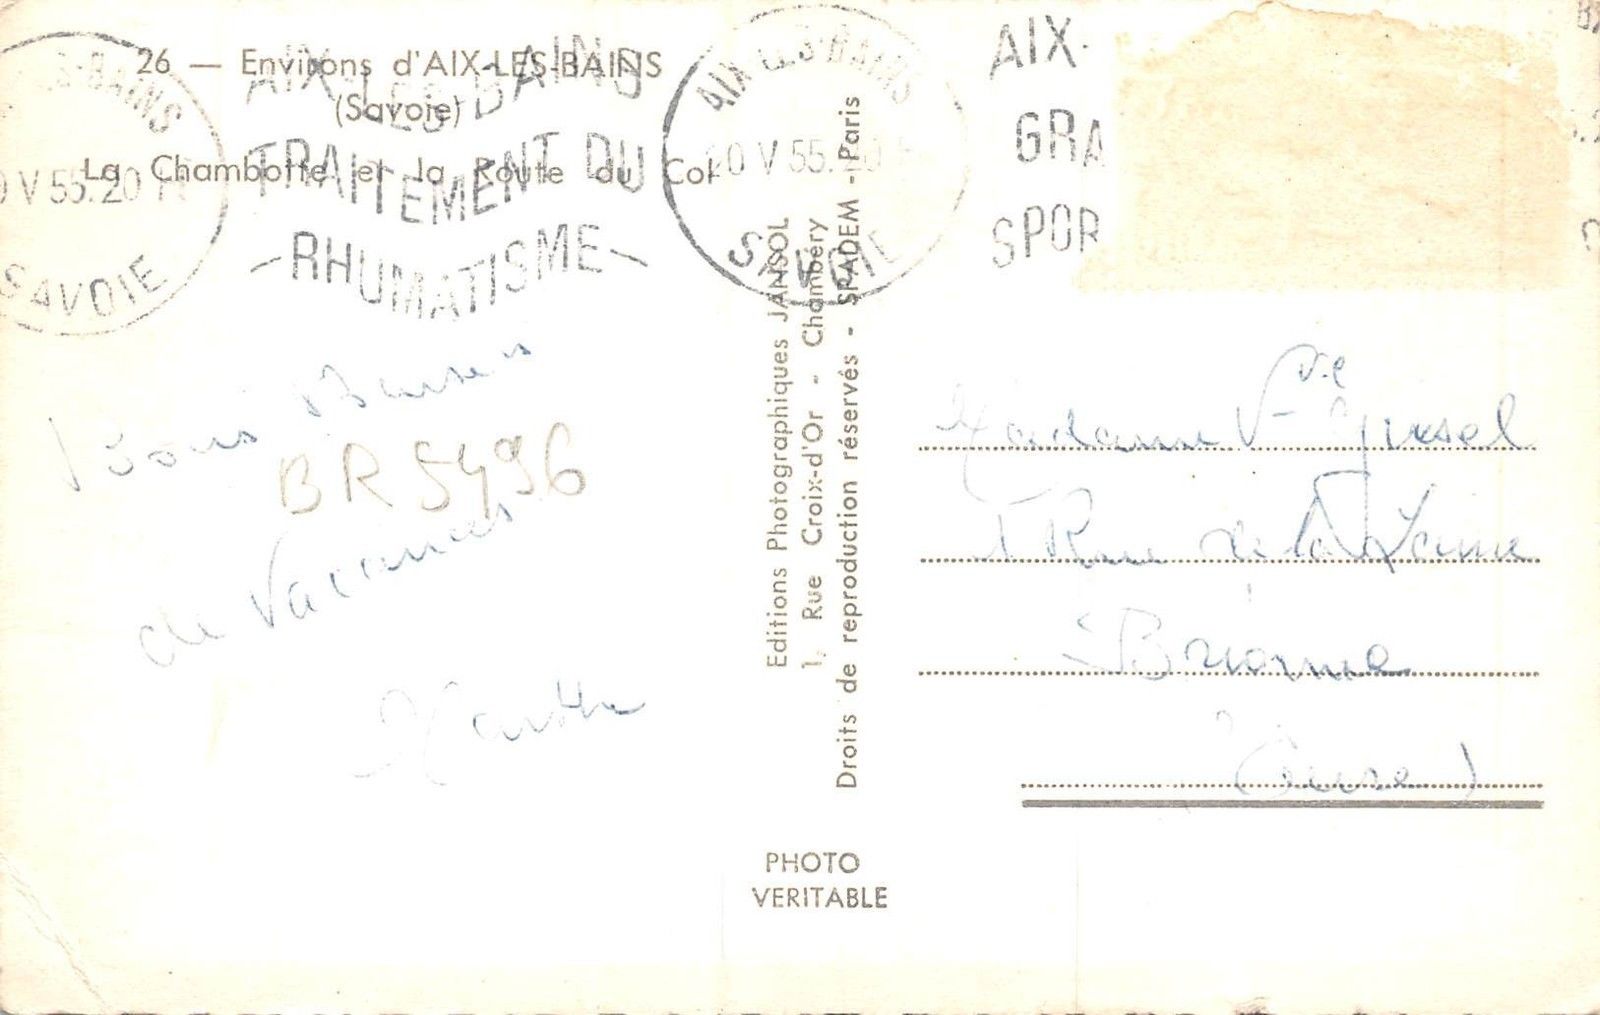 26 — Environs d'AIX-LES-BAINS
(Savoie)
La Chambotte et la Route du Col
AIX-LES-BAINS
TRAITEMENT DU
RHUMATISME
AIX-LES-BAINS
20 V 55.
SAVOIE
LES-BAINS
V 55. 20
SAVOIE
AIX-
GRA
SPOR
Bons Baisers
BR 5496
de Vacances
Editions Photographiques JANSOL
1, Rue Croix-d'Or - Chambéry
Droits de reproduction réservés - SPADEM - Paris
Madame Vve
1 Rue de la
Brionne
(Eure)
PHOTO
VERITABLE